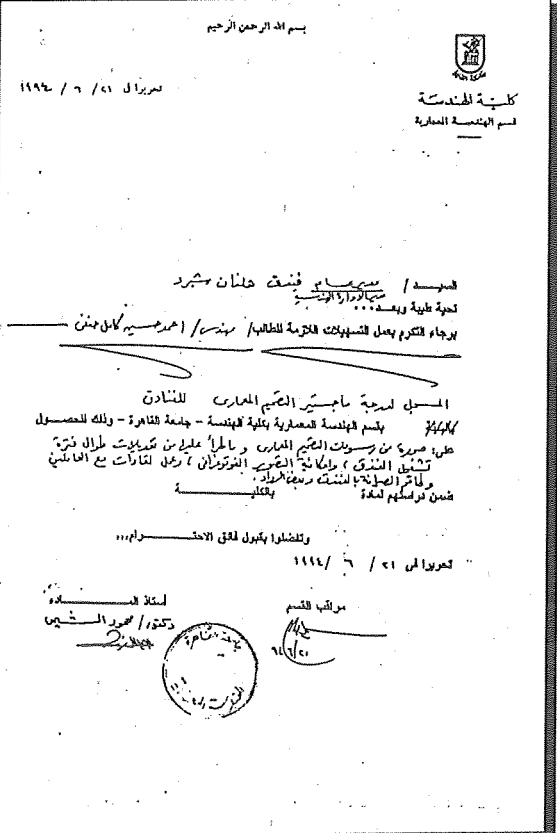 بسم الله الرحمن الرحيم
كلية الهندسة
قسم الهندسة المعمارية
تحريرا فى ٢١ / ٦ / ١٩٩٤
السيد / مدير عام فندق هلنان شبرد
مدير الادارة الهندسية
تحية طيبة وبعد ...
برجاء التكرم بعمل التسهيلات اللازمة للطالب / مهندس / احمد حسين كامل حنفى
المسجل لدرجة ماجستير التصميم المعمارى للفنادق
بقسم الهندسة المعمارية بكلية الهندسة - جامعة القاهرة - وذلك للحصول
على : صورة من رسومات التصميم المعمارى و ما طرأ عليها من تعديلات طوال فترة
تشغيل الفندق ، وامكانية التصوير الفوتوغرافى ، وعمل لقاءات مع العاملين
الصيانة بالفندق وبعض الرواد .
ضمن دراستهم لمادة بالكلية
وتفضلوا بقبول فائق الاحترام ،،،
تحريرا فى ٢١ / ٦ / ١٩٩٤
مراقب القسم
٩٤/٦/٢١
استاذ المادة
دكتور / محمود
جامعة القاهرة